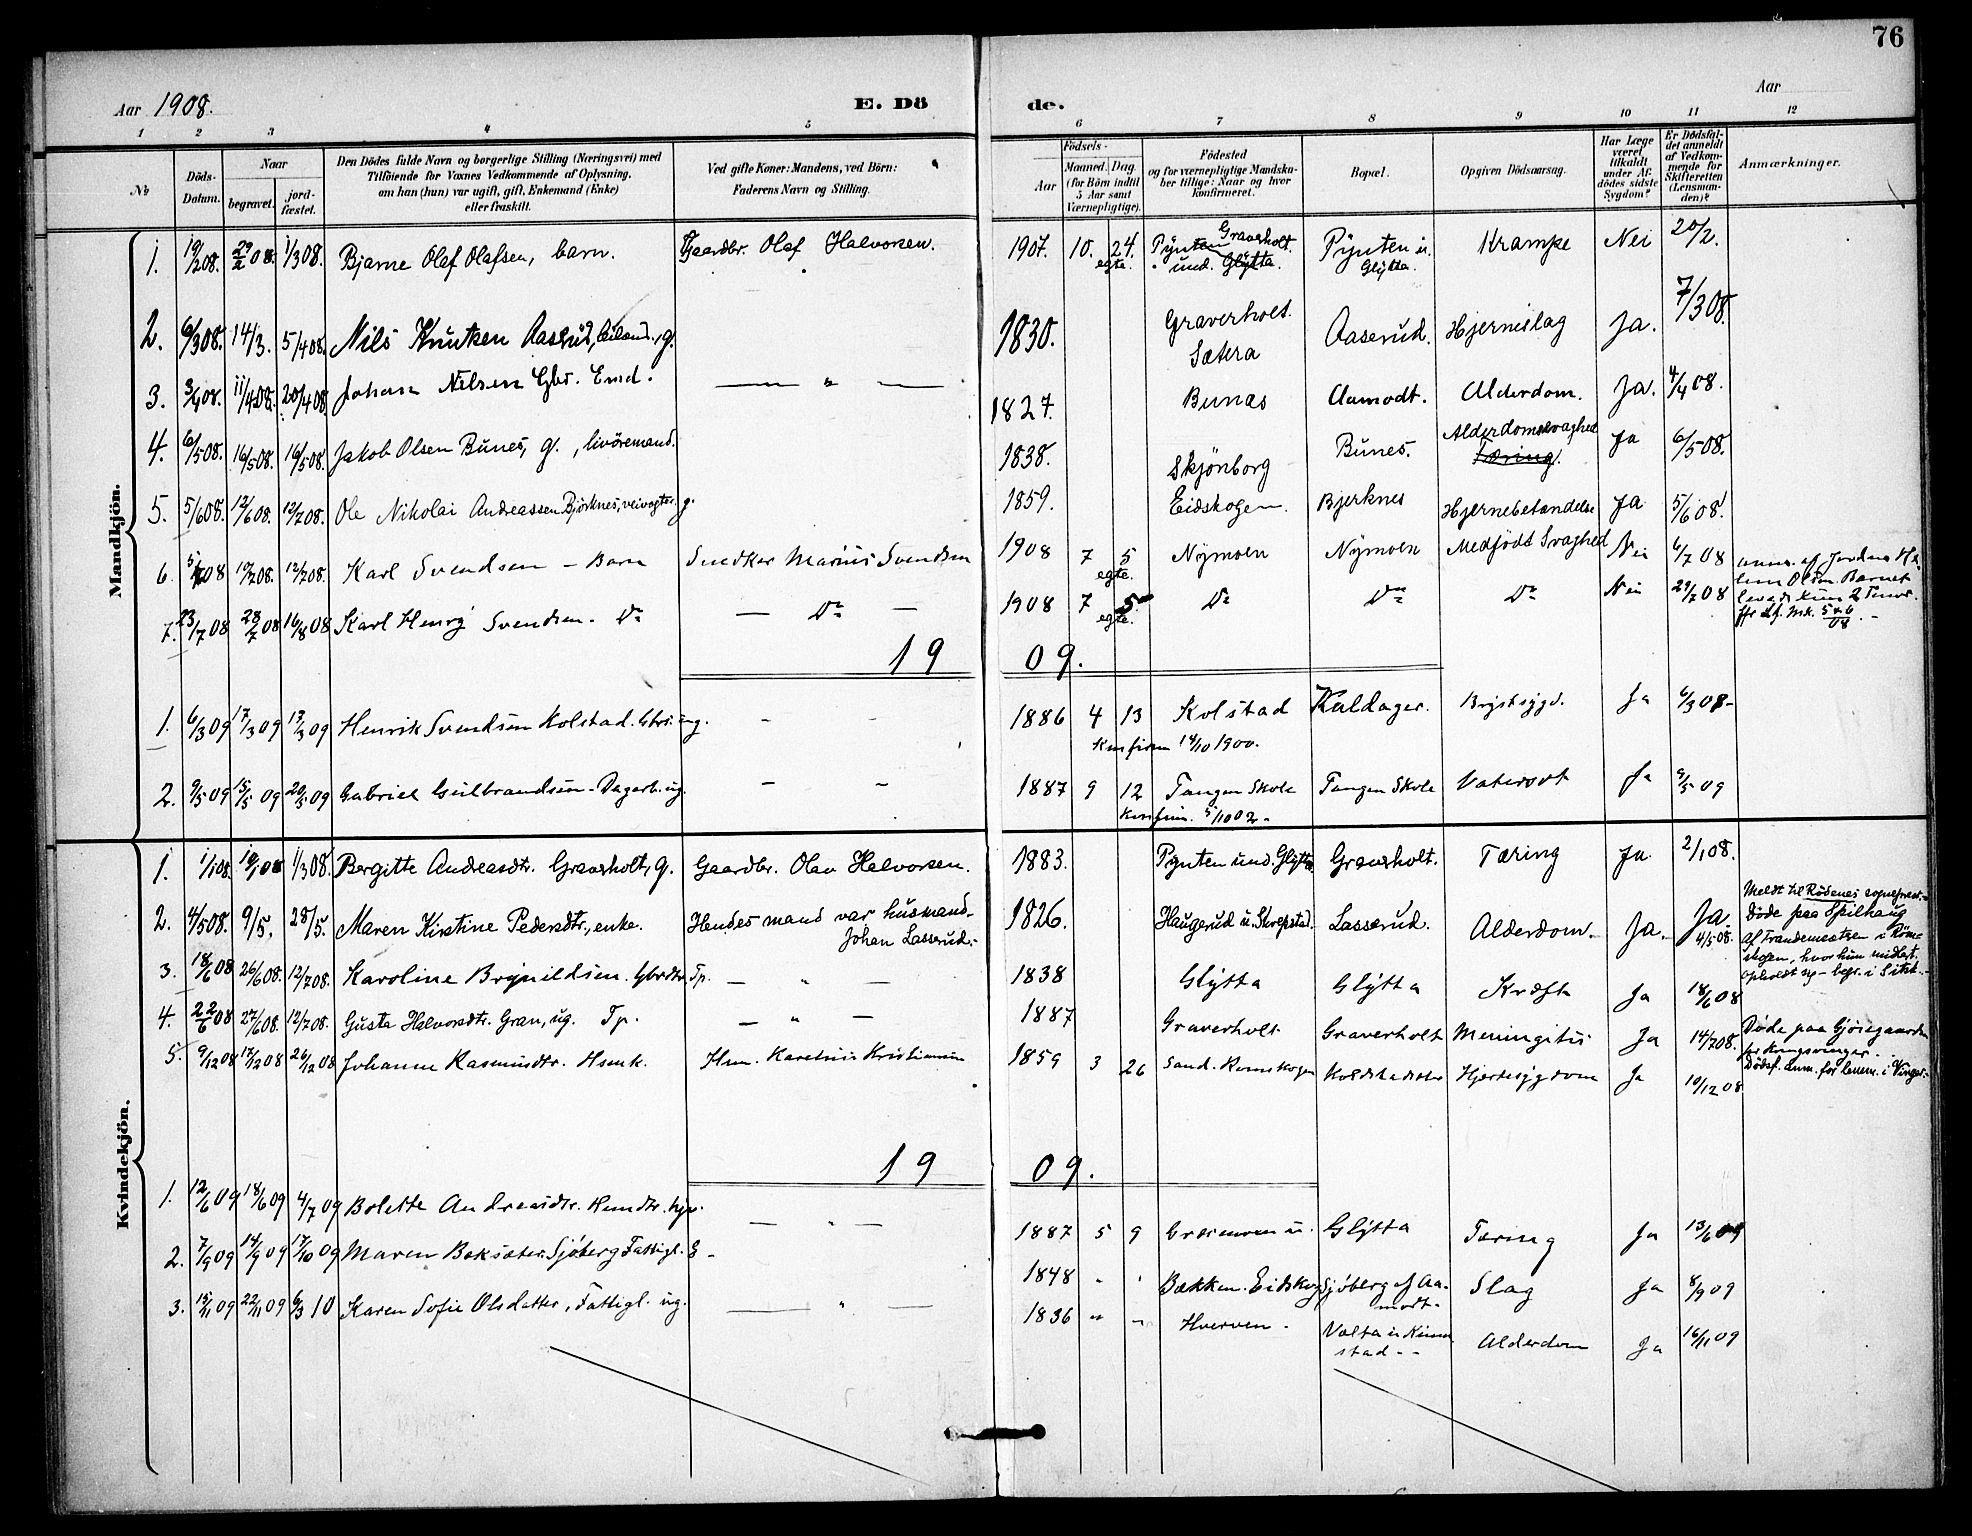 76
Aar 1908. E. Dö de. Aar
1 2 3 4 5 6 7 8 9 10 11 12
№ Döds-Datum. Naar begravet. jord-fæstet. Den Dödes fulde Navn og borgerlige Stilling (Næringsvei) med Tilföiende for Voxnes Vedkommende af Oplysning, om han (hun) var ugift, gift, Enkemand (Enke) eller fraskilt. Ved gifte Koner: Mandens, ved Börn: Faderens Navn og Stilling. Födsels- Aar Maaned. Dag. (for Börn indtil 5 Aar samt Værnepligtige). Födested og for værnepligtige Mandskaber tillige: Naar og hvor konfirmeret. Bopæl. Opgiven Dödsaarsag. Har Læge været tilkaldt under Afdödes sidste Sygdom? Er Dödsfaldet anmeldt af Vedkommende for Skifteretten (Lensmanden)? Anmærkninger.
Mandkjön.
1. 19/2 08. 29/2 08. 1/3 08. Bjarne Olaf Olafsen, barn. Gaardbr. Olaf Halvorsen. 1907. 10. 24. egte. Pynten Graverholt. und. Glÿtta. Pÿnten u. Glÿtta. Krampe Nei 20/2.
2. 6/3 08. 14/3. 5/4 08. Nils Knutsen Aaserud, g. 1830. Graverholt. Sætera Aaserud. Hjerneslag Ja. 7/3 08.
3. 3/4 08. 11/4 08. 20/4 08. Johan Nilsen Gbr. Emd. — " — 1827. Bunæs Aamodt. Alderdom. Ja. 4/4 08.
4. 6/5 08. 16/5 08. 16/5 08. Jakob Olsen Bunes, g., livöremand. 1838. Skjönborg Bunes. Alderdomsvaghed Tæring. Ja 6/5 08.
5. 5/6 08. 12/6 08. 12/7 08. Ole Nikolai Andreassen Björknes, veivogter. g. 1859. Eidskogen. Bjerknes Hjernebetændelse Ja 5/6 08.
6. 5/7 08 10/7 08. 12/7 08. Karl Svendsen – Barn Snedker Marius Svendsen 1908 7 5 egte. Nÿmoen Nÿmoen Medfödt Svaghed Nei 6/7 08 anm. af Jordm.
7. 23/7 08 28/7 08 16/8 08 Karl Henrÿ Svendsen. Do — Do — 1908 7 5 egte. Do Do Do Nei 29/7 08 Olsen. Barnet levede kun 2 Timer.
1909.
1. 6/3 09 17/3 09 17/3 09 Henrik Svendsen Kolstad. Gbrs. ug. - - 1886 4 13 Kolstad Kaldager. Brystsygd. Ja 6/3 08-
Konfirm 14/10 1900.
2. 9/5 09 15/5 09 20/5 09 Gabriel Gulbrandsen - Dagarb. ug. - - 1887 9 12 Tangen Skole Tangen Skole Vatersot Ja 9/5 09
Konfirm. 5/10 02-
Kvindekjön.
1. 1/1 08. 10/1 08 1/3 08. Bergitte Andreasdtr. Graverholt, g. Gaardbr. Olav Halvorsen. 1883. Pynten und. Glÿtta Graverholt. Tæring Ja. 2/1 08.
2. 4/5 08. 9/5. 28/5. Maren Kirstine Pedersdtr., enke. Hendes mand var husmand Johan Lasserud.- 1826. Haugerud u. Skrepstad. Lasserud. Alderdom- Ja. Ja. 4/5 08. Meldt til Rödenes sogneprest.- Döde paa Spilhaug af Trandemostsen i Römskogen, hvor hun midlert. opholdt sig - begr. i Sitsk.-
3. 18/6 08 26/6 08. 12/7 08. Karoline Brÿnildsen. Gbrdtr Tp. — " — 1838 Glÿtta Glÿtta Kræft Ja 18/6 08
4. 22/6 08 27/6 08. 12/7 08. Gusta Halvorsdtr. Gran, ug. Tp. — " — 1887 Graverholt Graverholt Meningitis Ja 14/7 08. Døde paa Gjöiegaarden pr Kongsvinger. Dödsf. anm. for lensm. i Vinger.-
5. 9/12 08 17/12 08 26/12 08 Johanne Rasmusdtr. Hsmk. Hsm. Karelius Kristiansen 1859 3 26 Sand. Romskogen Koldstadsber Hjertesÿgdom Ja 10/12 08
1909.
1. 12/6 09 18/6 09 4/7 09 Bolette Andreasdtr. — " — 1887 5 9 u. Glÿtta Tæring Ja 13/6 09
2. 7/9 09 14/9 09 17/10 09 Maren Boksæter Sjöberg Fattigl. E - 1848 - ' Bækken. Eidskog Sjöberg af Aamodt- Slag Ja 8/9 09
3. 15/11 09 22/11 09 6/3 10 Karen Sofie Olsdatter, Fattigl. ug. — " — 1836 " - Hverven- Valta u Kunstad-- Alderdom Ja 16/11 09